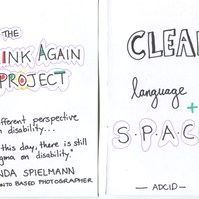 THE
INK AGAIN
PROJECT
fferent perspective
n disability...
this day, there is still
gma on disability."
NDA SPIELMANN
NTO BASED PHOTOGRAPHER
CLEA
language
+
S·P·A·C
— ADCID —